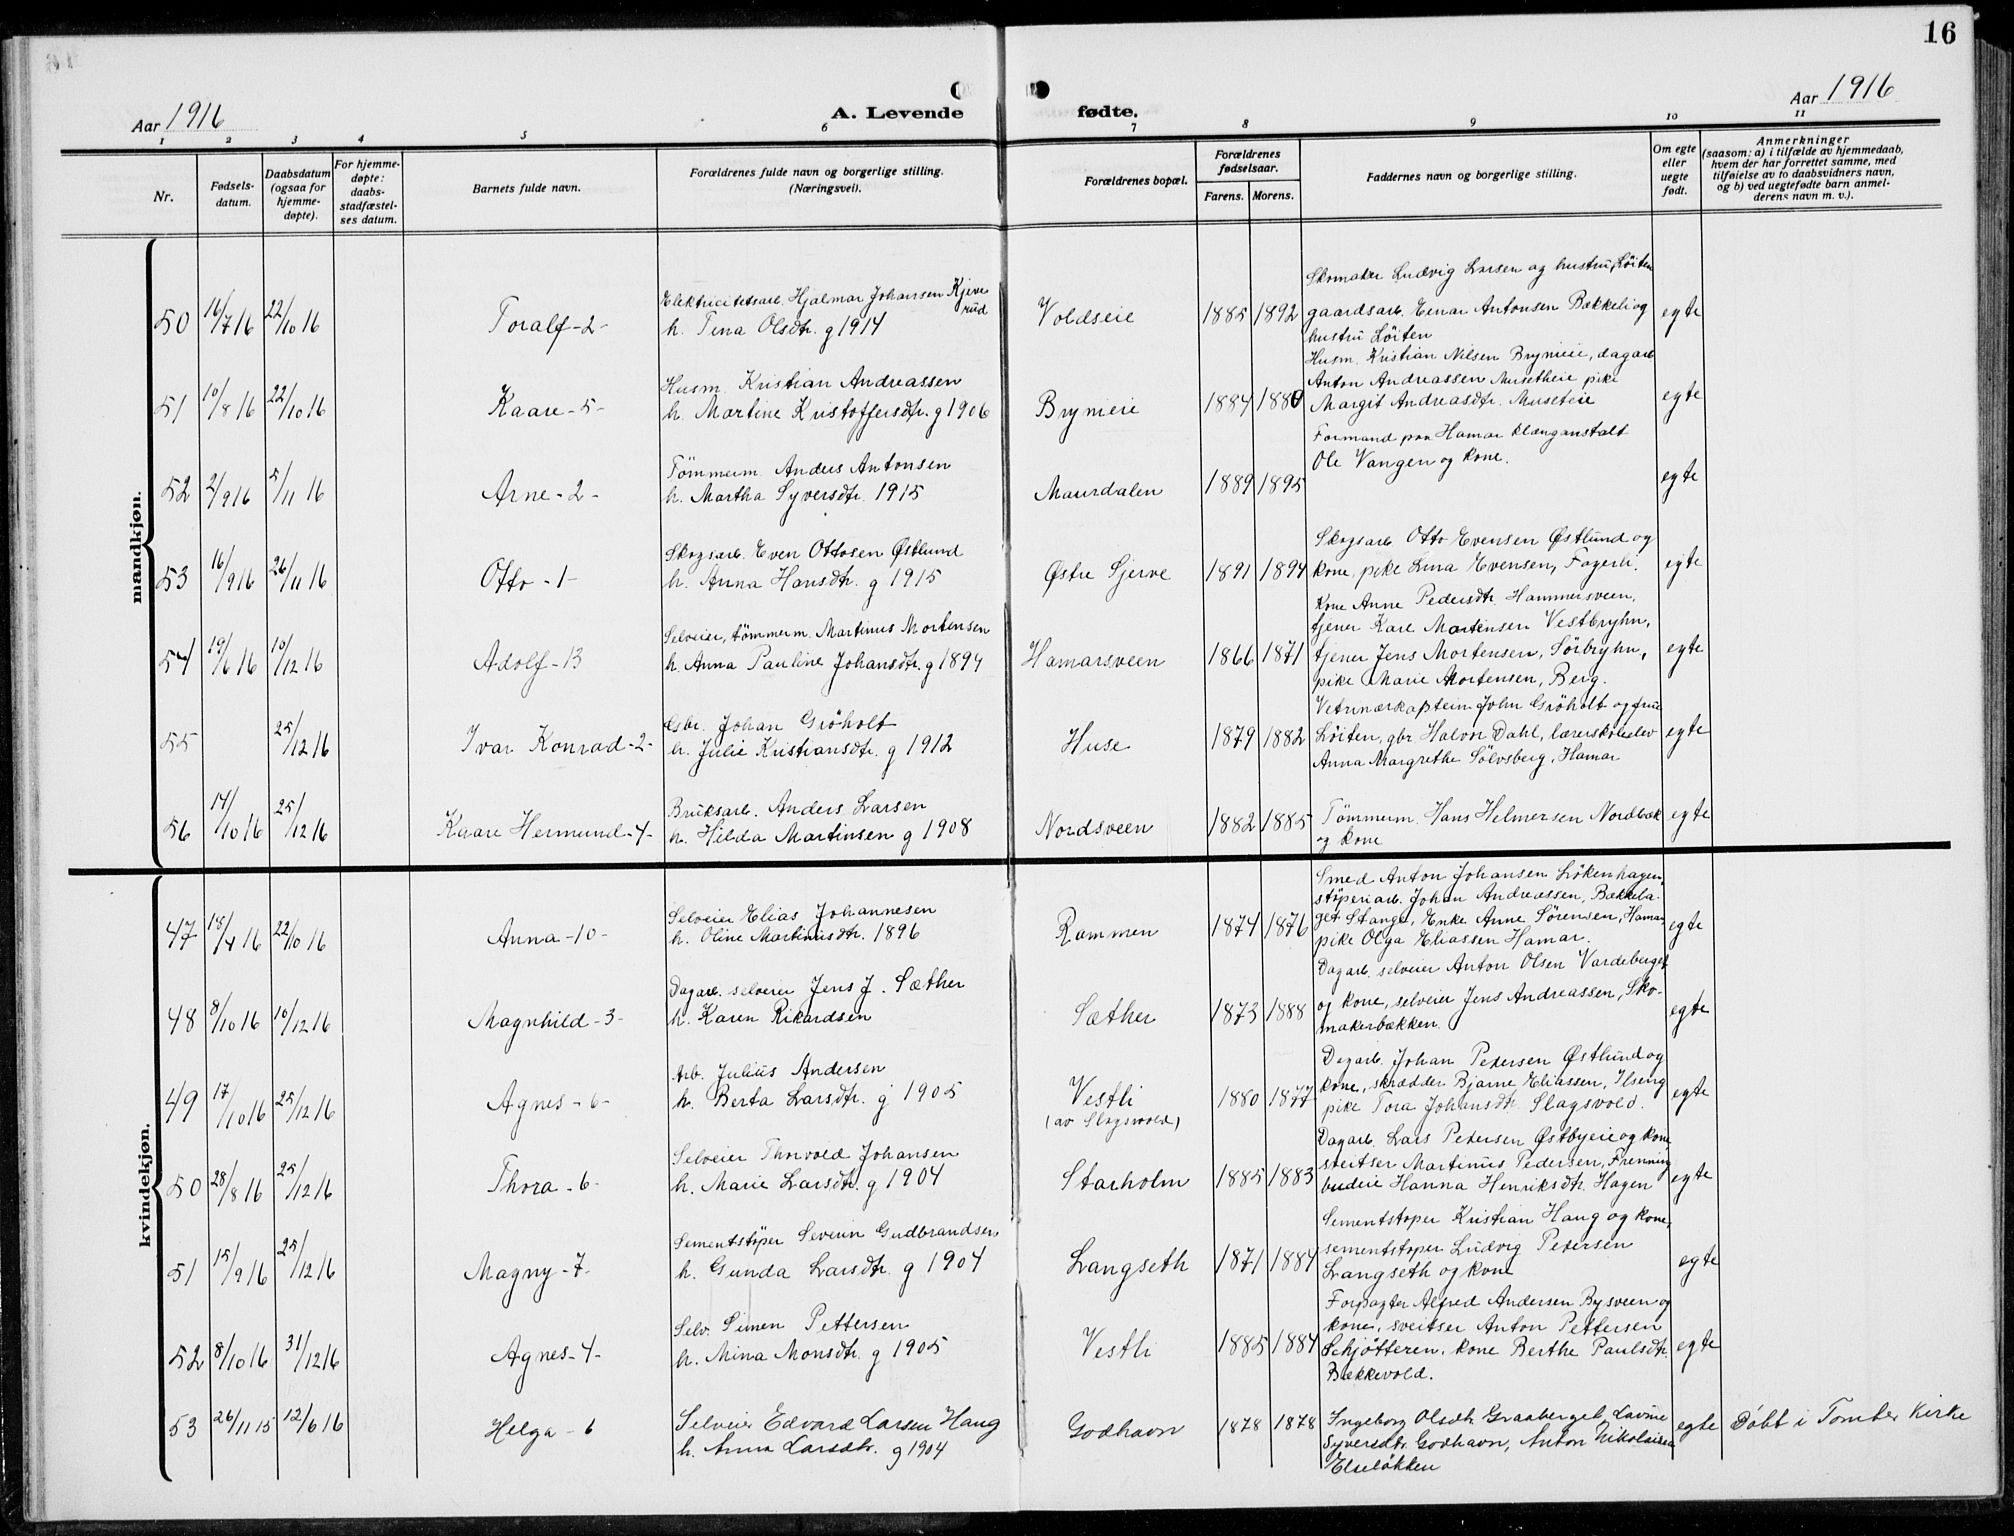 16
Aar 1916
A. Levende fødte.
Aar 1916
1 2 3 4 5 6 7 8 9 10 11
Nr.
Fødsels-
datum.
Daabsdatum
(ogsaa for
hjemme-
døpte).
For hjemme-
døpte:
daabs-
stadfæstel-
ses datum.
Barnets fulde navn.
Forældrenes fulde navn og borgerlige stilling.
(Næringsvei).
Forældrenes bopæl.
Forældrenes
fødselsaar.
Farens. Morens.
Faddernes navn og borgerlige stilling.
Om egte
eller
uegte
født.
Anmerkninger
(saasom: a) i tilfælde av hjemmedaab,
hvem der har forrettet samme, med
tilføielse av to daabsvidners navn,
og b) ved uegtefødte barn anmel-
derens navn m. v.).
mandkjøn.
50 16/7 16 22/10 16 Toralf - 2 -
Elektricitetsarb. Hjalmar Johansen Kjeve
rud
h. Tina Olsdtr. g 1914
Voldseie 1885 1892
Skomaker Ludvig Larsen og hustru, Löiten
gaardsarb. Einar Antonsen Bækkeli og
hustru Löiten
egte
51 10/8 16 22/10 16 Kaare - 5 -
Husm. Kristian Andreassen
h. Martine Kristoffersdtr. g 1906
Brynieie 1884 1880
Husm. Kristian Nilsen Brynieie, dagarb
Anton Andreassen Musetheie pike
Margit Andreasdtr. Museteie
egte
52 2/9 16 5/11 16 Arne - 2 -
Tömmerm. Anders Antonsen
h. Martha Syversdtr. 1915
Maurdalen 1889 1895
Formand paa Hamar klænganstalt
Ole Vangen og kone.
egte
53 16/9 16 26/11 16 Otto - 1 -
Skogsarb. Even Ottosen Østlund
h. Anna Hansdtr. g 1915
Østre Gjerve 1891 1894
Skogsarb Otto Evensen Østlund og
kone, pike Lina Evensen, Fagerli.
egte
54 19/6 16 10/12 16 Adolf - 13
Selveier, tömmerm. Martinus Mortensen
h. Anna Pauline Johansdtr. g 1894
Hamarsveen 1866 1871
Kone Anne Pedersdtr. Hammersveen,
tjener Kare Mortensen Vestbryhn,
tjener Jens Mortensen, Sörbryhn,
pike Marie Mortensen, Berg.
egte
55 25/12 16 Ivar Konrad - 2 -
Gbr. Johan Gröholt
h. Julie Kristiansdtr. g 1912
Huse 1879 1882
Vetrinærkaptein John Gröholt og frue
Löiten, gbr Halvor Dahl, lærerskoleelev
Anna Margrethe Sölvsberg, Hamar
egte
56 14/10 16 25/12 16 Kaare Hermund - 4 -
Bruksarb. Anders Larsen
h. Hilda Martinsen g 1908
Nordsveen 1882 1885
Tömmerm. Hans Helmersen Nordbæk
og kone
egte
kvindekjøn.
47 18/4 16 22/10 16 Anna - 10 -
Selveier Elias Johannesen
h. Oline Martinusdtr. 1896
Rammen 1874 1876
Smed Anton Johansen Lökenhagen,
støperiarb. Johan Andreassen, Bækkela-
get Stange, Enke Anne Sörensen, Hamar,
pike Olga Eliassen Hamar.
egte
48 8/10 16 10/12 16 Magnhild - 3 -
Dagarb. selveier Jens J. Sæther
h. Karen Rikardsen
Sæther 1873 1888
Dagarb. selveier Anton Olsen Vardeberget
og kone, selveier Jens Andreassen, Sko-
makerbækken.
egte
49 17/10 16 25/12 16 Agnes - 6 -
Arb. Julius Andersen
h. Berta Larsdtr. g 1905
Vestli
(av Slagsvold)
1880 1877
Dagarb. Johan Petersen Østlund og
kone, skrædder Bjarne Eliassen, Ilseng
pike Tora Johansdtr. Slagsvold.
egte
50 28/8 16 25/12 16 Thora - 6 -
Selveier Thorvold Johansen
h. Marie Larsdtr. g 1904
Starholm 1885 1883
Dagarb. Lars Petersen Østbyeie og kone,
sveitser Martinus Pedersen, Frenning
budeie Hanna Henriksdtr. Hagen
egte
51 15/9 16 25/12 16 Magny - 7 -
Sementstöper Severin Gudbrandsen
h. Gunda Larsdtr. g 1904
Langseth 1871 1884
Sementstøper Kristian Haug og kone,
sementstøper Ludvig Petersen
Langseth og kone
egte
52 8/10 16 31/12 16 Agnes - 4 -
Selv. Simen Pettersen
h. Mina Monsdtr. g 1905
Vestli 1885 1884
Forpagter Alfred Andersen Bysveen og
kone, sveitser Anton Pettersen
Schjötteren, kone Berthe Paulsdtr.
Bækkevold.
egte
53 26/11 15 12/6 16 Helga - 6
Selveier Edvard Larsen Haug
h. Anna Larsdtr. g 1904
Godhavn 1878 1878
Ingeborg Olsdtr. Graaberget, Lavine
Syversdtr. Godhavn, Anton Nikolaisen
Elseløkken
egte
Døbt i Tomter kirke